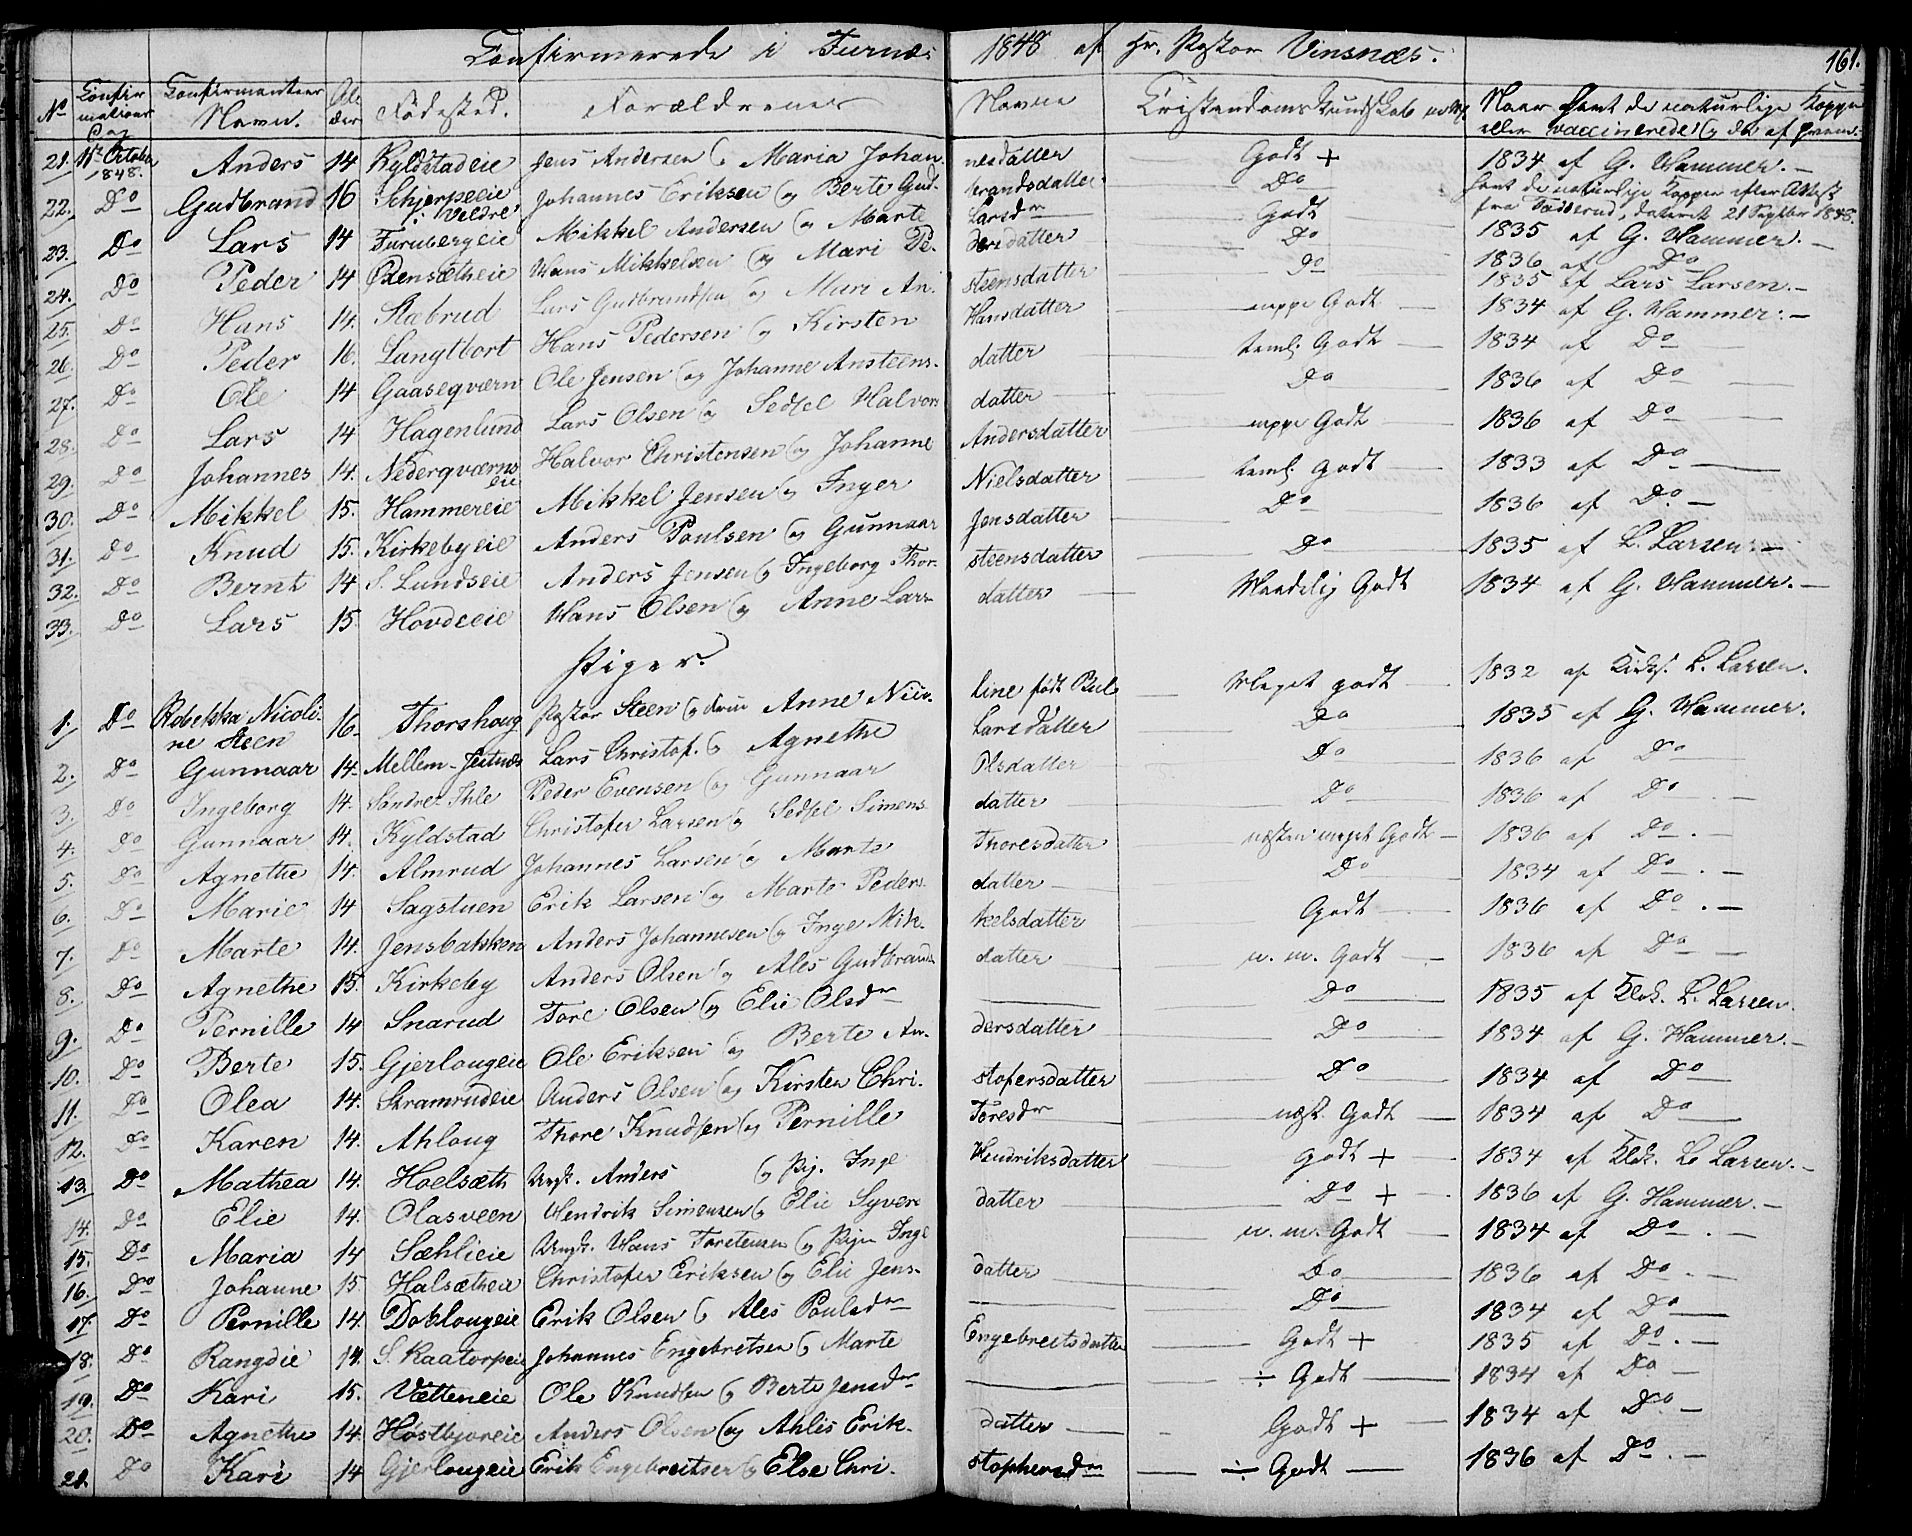 Confirmerede i Furnæs 1848 af Hr. Pastor Vinsnæs.
161.
No Confirmations Dag Confirmanternes Navn. Alder Fødested. Forældrenes Navne Kristendoms Kundskab Naar havt de naturlige Kopper eller vaccinerede og da af hvem.
21. 11te October 1848. Anders 14 Kyldstadeie Jens Andersen og Maria Johannesdatter Godt + 1834 af G. Hammer. —
22. Do Gudbrand 16 Schjerpeeie i Veldre Johannes Eriksen og Berte Gudbrandsdatter Do havt de naturlige Kopper efter Attest fra Fødderud, dateret 21 Septbr 1848.
23. Do Lars 14 Furubergeie Mikkel Andersen og Marte Larsdr Godt 1835 af G. Hammer. —
24. Do Peder 14 Øensætheie Hans Mikkelsen og Mari Pedersdatter Do 1836 af Do
25. Do Hans 14. Stabrud Lars Gudbrandsen og Mari Ansteensdatter Do 1835 af Lars Larsen. —
26. Do Peder 16. Langtbort Hans Pedersen og Kirsten Hansdatter neppe Godt 1834 af G. Hammer. —
27. Do Ole 14 Gaaseqværn Ole Jensen og Johanne Ansteensdatter teml. Godt 1834 af Do
28. Do Lars 14 Hagenlund Lars Olsen og Sedsel Halvorsdatter Do 1836 af Do
29. Do Johannes 14. Nederqværnseie Halvor Christensen og Johanne Andersdatter neppe Godt 1836 af Do
30. Do Mikkel 15. Hammereie Mikkel Jensen og Inger Nielsdatter temł. Godt 1833 af Do
31. Do Knud 15. Kirkebyeie Anders Poulsen og Gunnaar Jensdatter Do 1836 af Do. —
32. Do Bernt 14 S. Lundseie Anders Jensen og Ingeborg Thorsteensdatter Do 1835 af L. Larsen. —
33. Do Lars 15. Hovdeeie Hans Olsen og Anne Larsdatter Maadelig Godt 1834 af G. Hammer. —
Piger.
1. Do Rebekka Nicoline Steen 16. Thorshoug Pastor Steen og Anne Nicoline født Meget godt 1832 af L. Larsen.
2. Do Gunnaar 14. Mellem-Jestnæs Lars Christof. og Agnethe Larsdatter Do 1835 af G. Hammer.
3. Do Ingeborg 14. Sandvet Ihle Peder Evensen og Gunnaar Olsdatter Do 1836 af Do
4. Do Gunnaar 14. Kyldstad Christofer Larsen og Sedsel Simensdatter Do 1836 af Do
5. Do Agnethe 14. Almrud Johannes Larsen og Marte Thoresdatter næsten meget Godt 1836 af Do. —
6. Do Marie 14 Sagstuen Erik Larsen og Marte Pedersdatter Do 1834 af Do. —
7. Do Marte 14. Jensbakken Anders Johannesen og Inge Mikkelsdatter Godt 1836 af Do. —
8. Do Agnethe 15. Kirkeby Anders Olsen og Ales Gudbrandsdatter n. m. Godt 1836 af Do —
9. Do Pernille 14 Snarud Tore Olsen og Elie Olsdr Do 1835 af Klok. L. Larsen.
10. Do Berte 15. Gjerlougeie Ole Eriksen og Berte Andersdatter Do 1834 af G. Hammer. —
11. Do Olea 14. Skramrudeie Anders Olsen og Kirsten Christofersdatter Do 1834 af Do
12. Do Karen 14. Ahloug Thore Knudsen og Pernille Toresdr næst Godt 1834 af Do
13. Do Mathea 14. Hoelsæth Ungk. Anders og Pg. Inge Hendriksdatter Godt + 1834 af Klok. L. Larsen. —
14. Do Elie 14. Olasveen Hendrik Simensen og Elie Syversdatter Do + 1836 af G. Hammer. —
15. Do Maria 14 Sæhlieie Ungk. Hans Torstensen og Pige Inge n. m. Godt 1834 af Do. —
16. Do Johanne 15. Halsætheie Christofer Eriksen og Elie Jensdatter Do 1836 af Do. —
17. Do Pernille 14. Doblougeie Erik Olsen og Ales Poulsdr Do 1834 af Do
18. Do Rangdie 14. S. Kaatorpeie Johannes Engebretsen og Marte Engebreitsdatter Godt + 1835 af Do. —
19. Do Kari 15. Vætteneie Ole Knudsen og Berte Jensdr ÷ Godt 1834 af Do —
20. Do Agnethe 14. Høstbjøreie Anders Olsen og Ahlis Eriksdatter Godt + 1834 af Do —
21. Do Kari 14 Gjerlougeie Erik Engebreitsen og Else Christophersdr ÷ Godt 1836 af Do. —